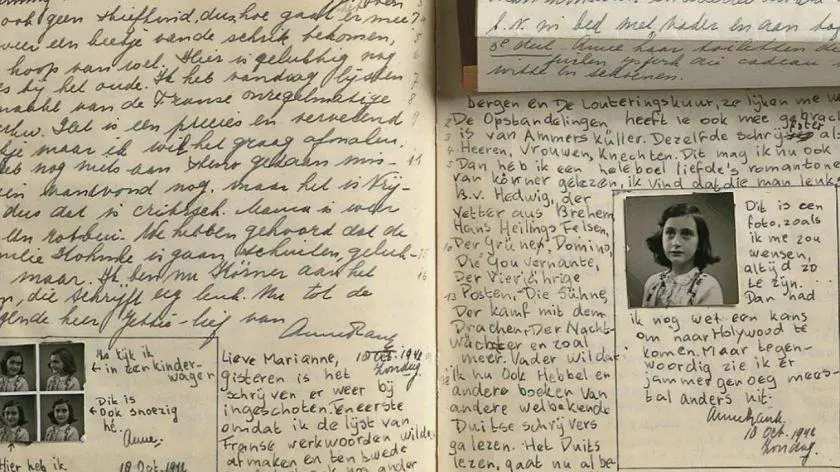 ook geen schiefhind, dus hoe gaat er mee
weer een beetje van de schrik bekomen,
hoop van wel. Hier is gelukkig nog
es bij het oude. Ik heb vandaag lijsten
maakt van de Franse onregelmatige
Dat is een precies en vervelend
tje maar ik wil het graag afmaken.
heb nog niets aan steno gedaan mis-
vanavond nog. maar het is Vrij-
dus dat is critisch. Mama is weer
We hebben gehoord dat de
milie is gaan schuilen, geluk-
maar. Ik ben nu Körner aan het
die schrijft erg leuk. Nu tot de
gende keer Jettie-lief van
Anne Frank
Zo kijk ik
in een kinder-
wagen
Dit is
Ook snoezig
hè.
Anne.
Hier heb ik
18 Oct. 1942
Lieve Marianne,
10 Oct. 1942
Zondag.
gisteren is het
schrijven er weer bij
ingeschoten, teneerste
omdat ik de lijst van
Franse werkwoorden wilde
afmaken en ten twede
nog ander
b.v. in bed met vader en aan
3e deel. Anne haar
die cadeau
bergen en De Louteringskuur, ze lijken me
De Opstandelingen heeft ie ook mee gebrach
is van Ammers küller. Dezelfde schrijfster
Heeren, Vrouwen, Knechten. Dit mag ik nu ook
Dan heb ik een heleboel liefde's romantone
van körner gelezen, ik vind dat die man leuk
B.v. Hedwig, der
Vetter aus Bremen,
Hans Heilings Felsen,
Der Grüne, Domino,
Die Gouvernante,
Der Vierjährige
Posten, Die Sühne,
Der kampf mit dem
Drachen, Der Nacht-
wächter en zoal
meer. Vader wil dat
ik nu ook Hebbel en
andere boeken van
andere welbekende
Duitse schrijvers
ga lezen. Het Duits
lezen, gaat nu al be-
Dit is een
foto, zoals
ik me zou
wensen,
altijd zo
te zijn.
Dan had
ik nog wel een kans
om naar Holywood te
komen. Maar tegen-
woordig zie ik er
jammer genoeg mees-
tal anders uit.
Anne Frank.
10 Oct. 1942
Zondag.